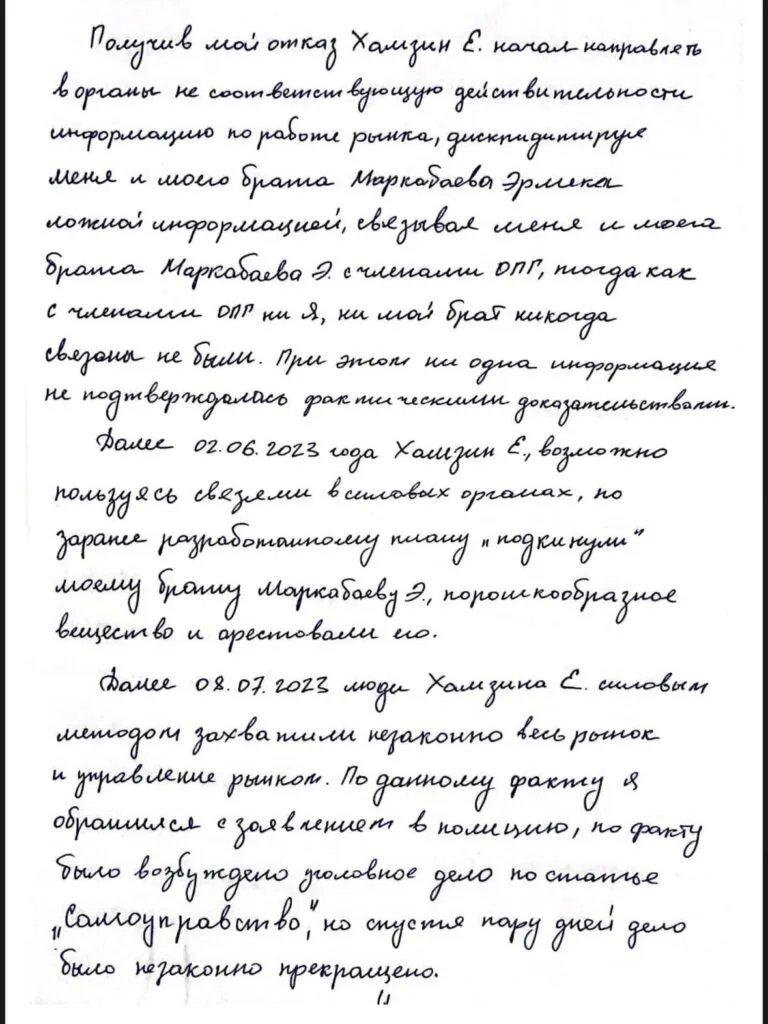 Получив мой отказ Хамзин Е. начал направлять
в органы не соответствующую действительности
информацию по работе рынка, дискридитируя
меня и моего брата Маркабаева Эрмека
ложной информацией, связывая меня и моего
брата Маркабаева Э. с членами ОПГ, тогда как
с членами ОПГ ни я, ни мой брат никогда
связаны не были. При этом ни одна информация
не подтверждалась фактическими доказательствами.
Далее 02.06.2023 года Хамзин Е., возможно
пользуясь связями в силовых органах, по
заранее разработанному плану „подкинули“
моему брату Маркабаеву Э., порошкообразное
вещество и арестовали его.
Далее 08.07.2023 люди Хамзина Е. силовым
методом захватили незаконно весь рынок
и управление рынком. По данному факту я
обратился с заявлением в полицию, по факту
было возбуждено уголовное дело по статье
„Самоуправство“, но спустя пару дней дело
было незаконно прекращено.